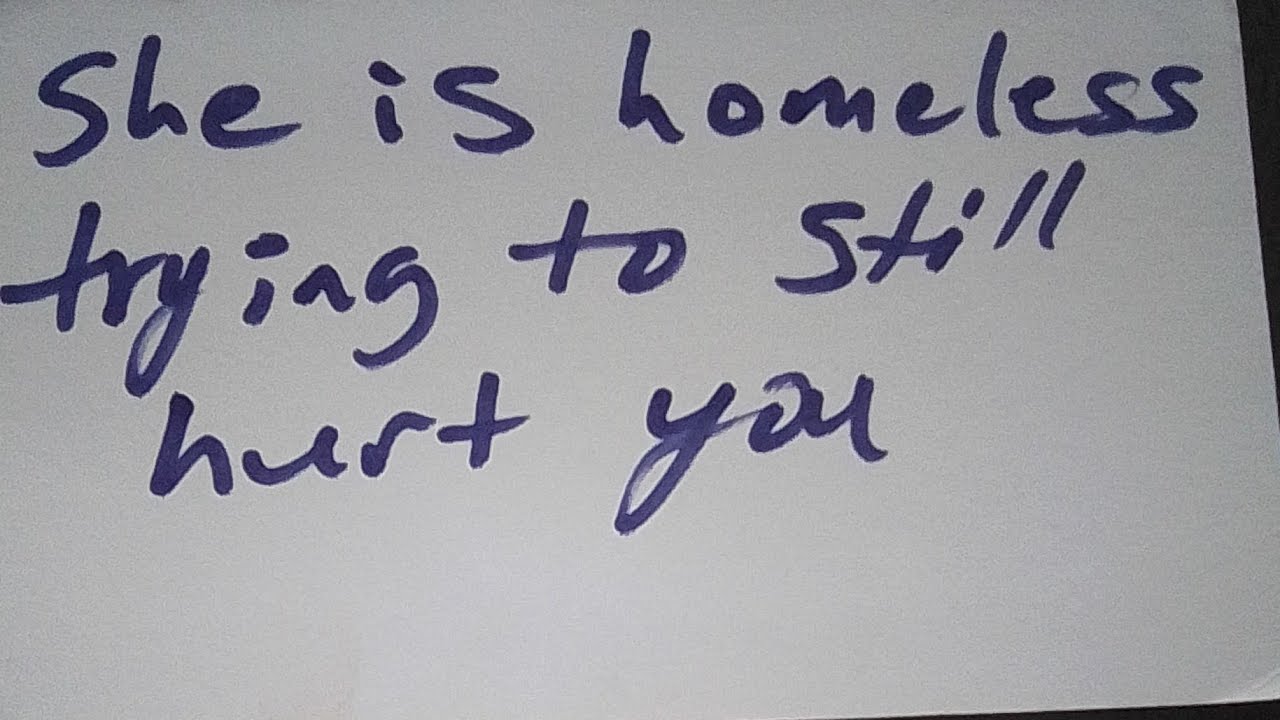 She is homeless
trying to still
hurt you